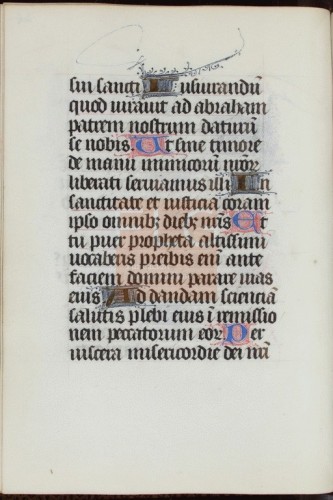 sui sancti Iusiurandũ
quod iurauit ad abraham
patrem nostrum daturũ
se nobis. Ut sine timore
de manu inimicorũ nr̃or̃
liberati seruiamus illi In
sanctitate et iusticia coram
ipso omnibꝫ diebꝫ nr̃is Et
tu puer propheta altissimi
uocaberis preibis eni᷉ ante
faciem domini parare uias
eius Ad dandam scienciã
salutis plebi eius ĩ remissio
nem peccatorum eor̃ Per
uiscera misericordie dei nr̃i